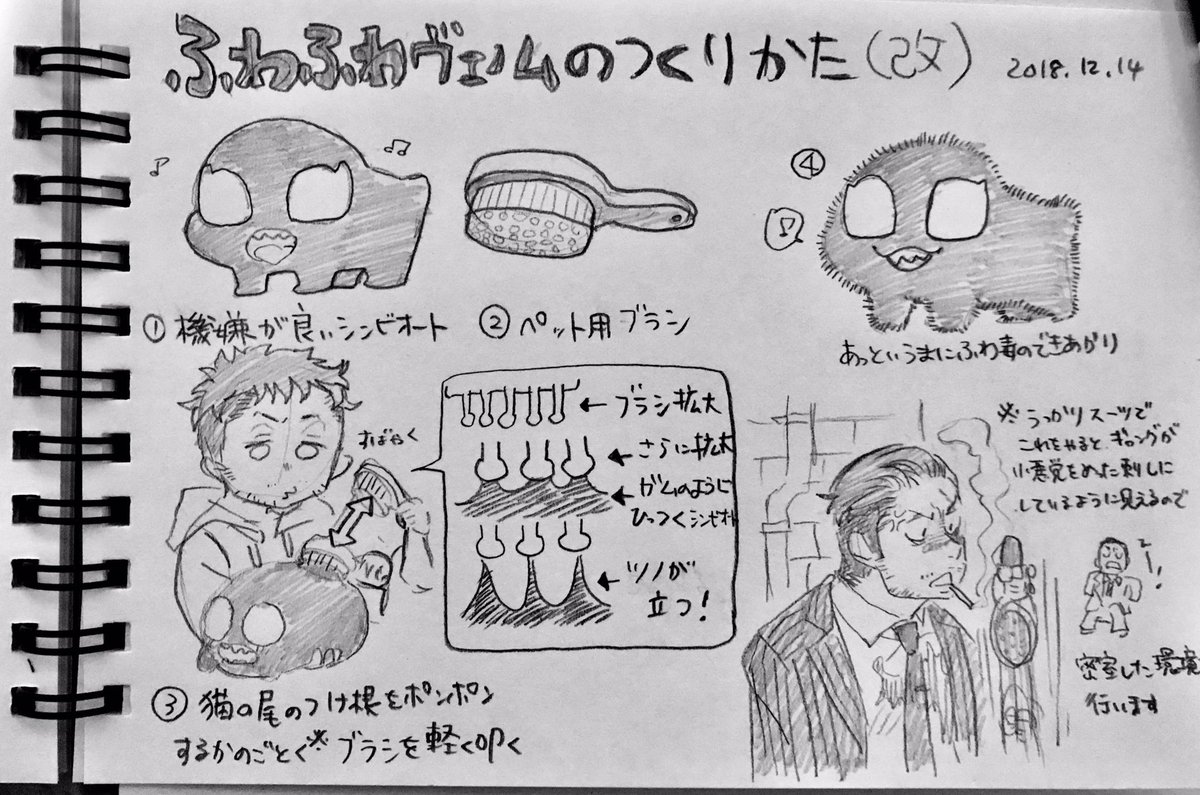 ふわふわヴェノムのつくりかた(改)
2018.12.14
① 機嫌が良いシンビオート
② ペット用ブラシ
すばやく
← ブラシ拡大
← さらに拡大
← ガムのように
ひっつくシンビオート
← ツノが
立つ!
③ 猫の尾のつけ根をポンポン
するかのごとく※ブラシを軽く叩く
④
あっというまにふわ毒のできあがり
※うっかりスーツで
これをやると、ギャングが
小悪党をめった刺しに
しているように見えるので
密室した環境
行います